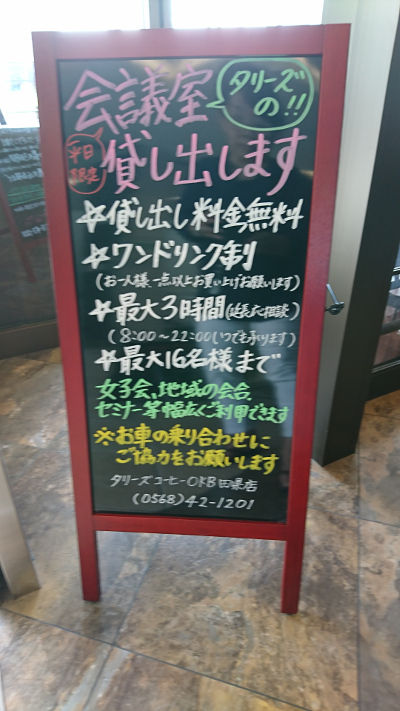 会議室
タリーズ
の!!
平日
限定
貸し出します
☆貸し出し料金無料
☆ワンドリンク制
(お一人様、一点以上お買い上げお願いします)
☆最大3時間(延長応相談)
(8:00~22:00いつでも承ります)
☆最大16名様まで
女子会、地域の会合、
セミナー等幅広くご利用できます
※お車の乗り合わせに
ご協力をお願いします
タリーズコーヒーOKB田県店
(0568)42-1201